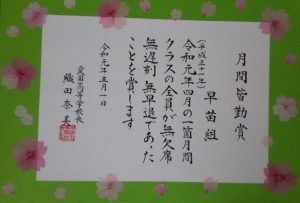 月間皆勤賞
早苗組
(平成三十一年)
令和元年四月の一箇月間
クラスの全員が無欠席
無遅刻 無早退であった
ことを賞します
令和元年五月一日
愛国高等学校長
織田奈美